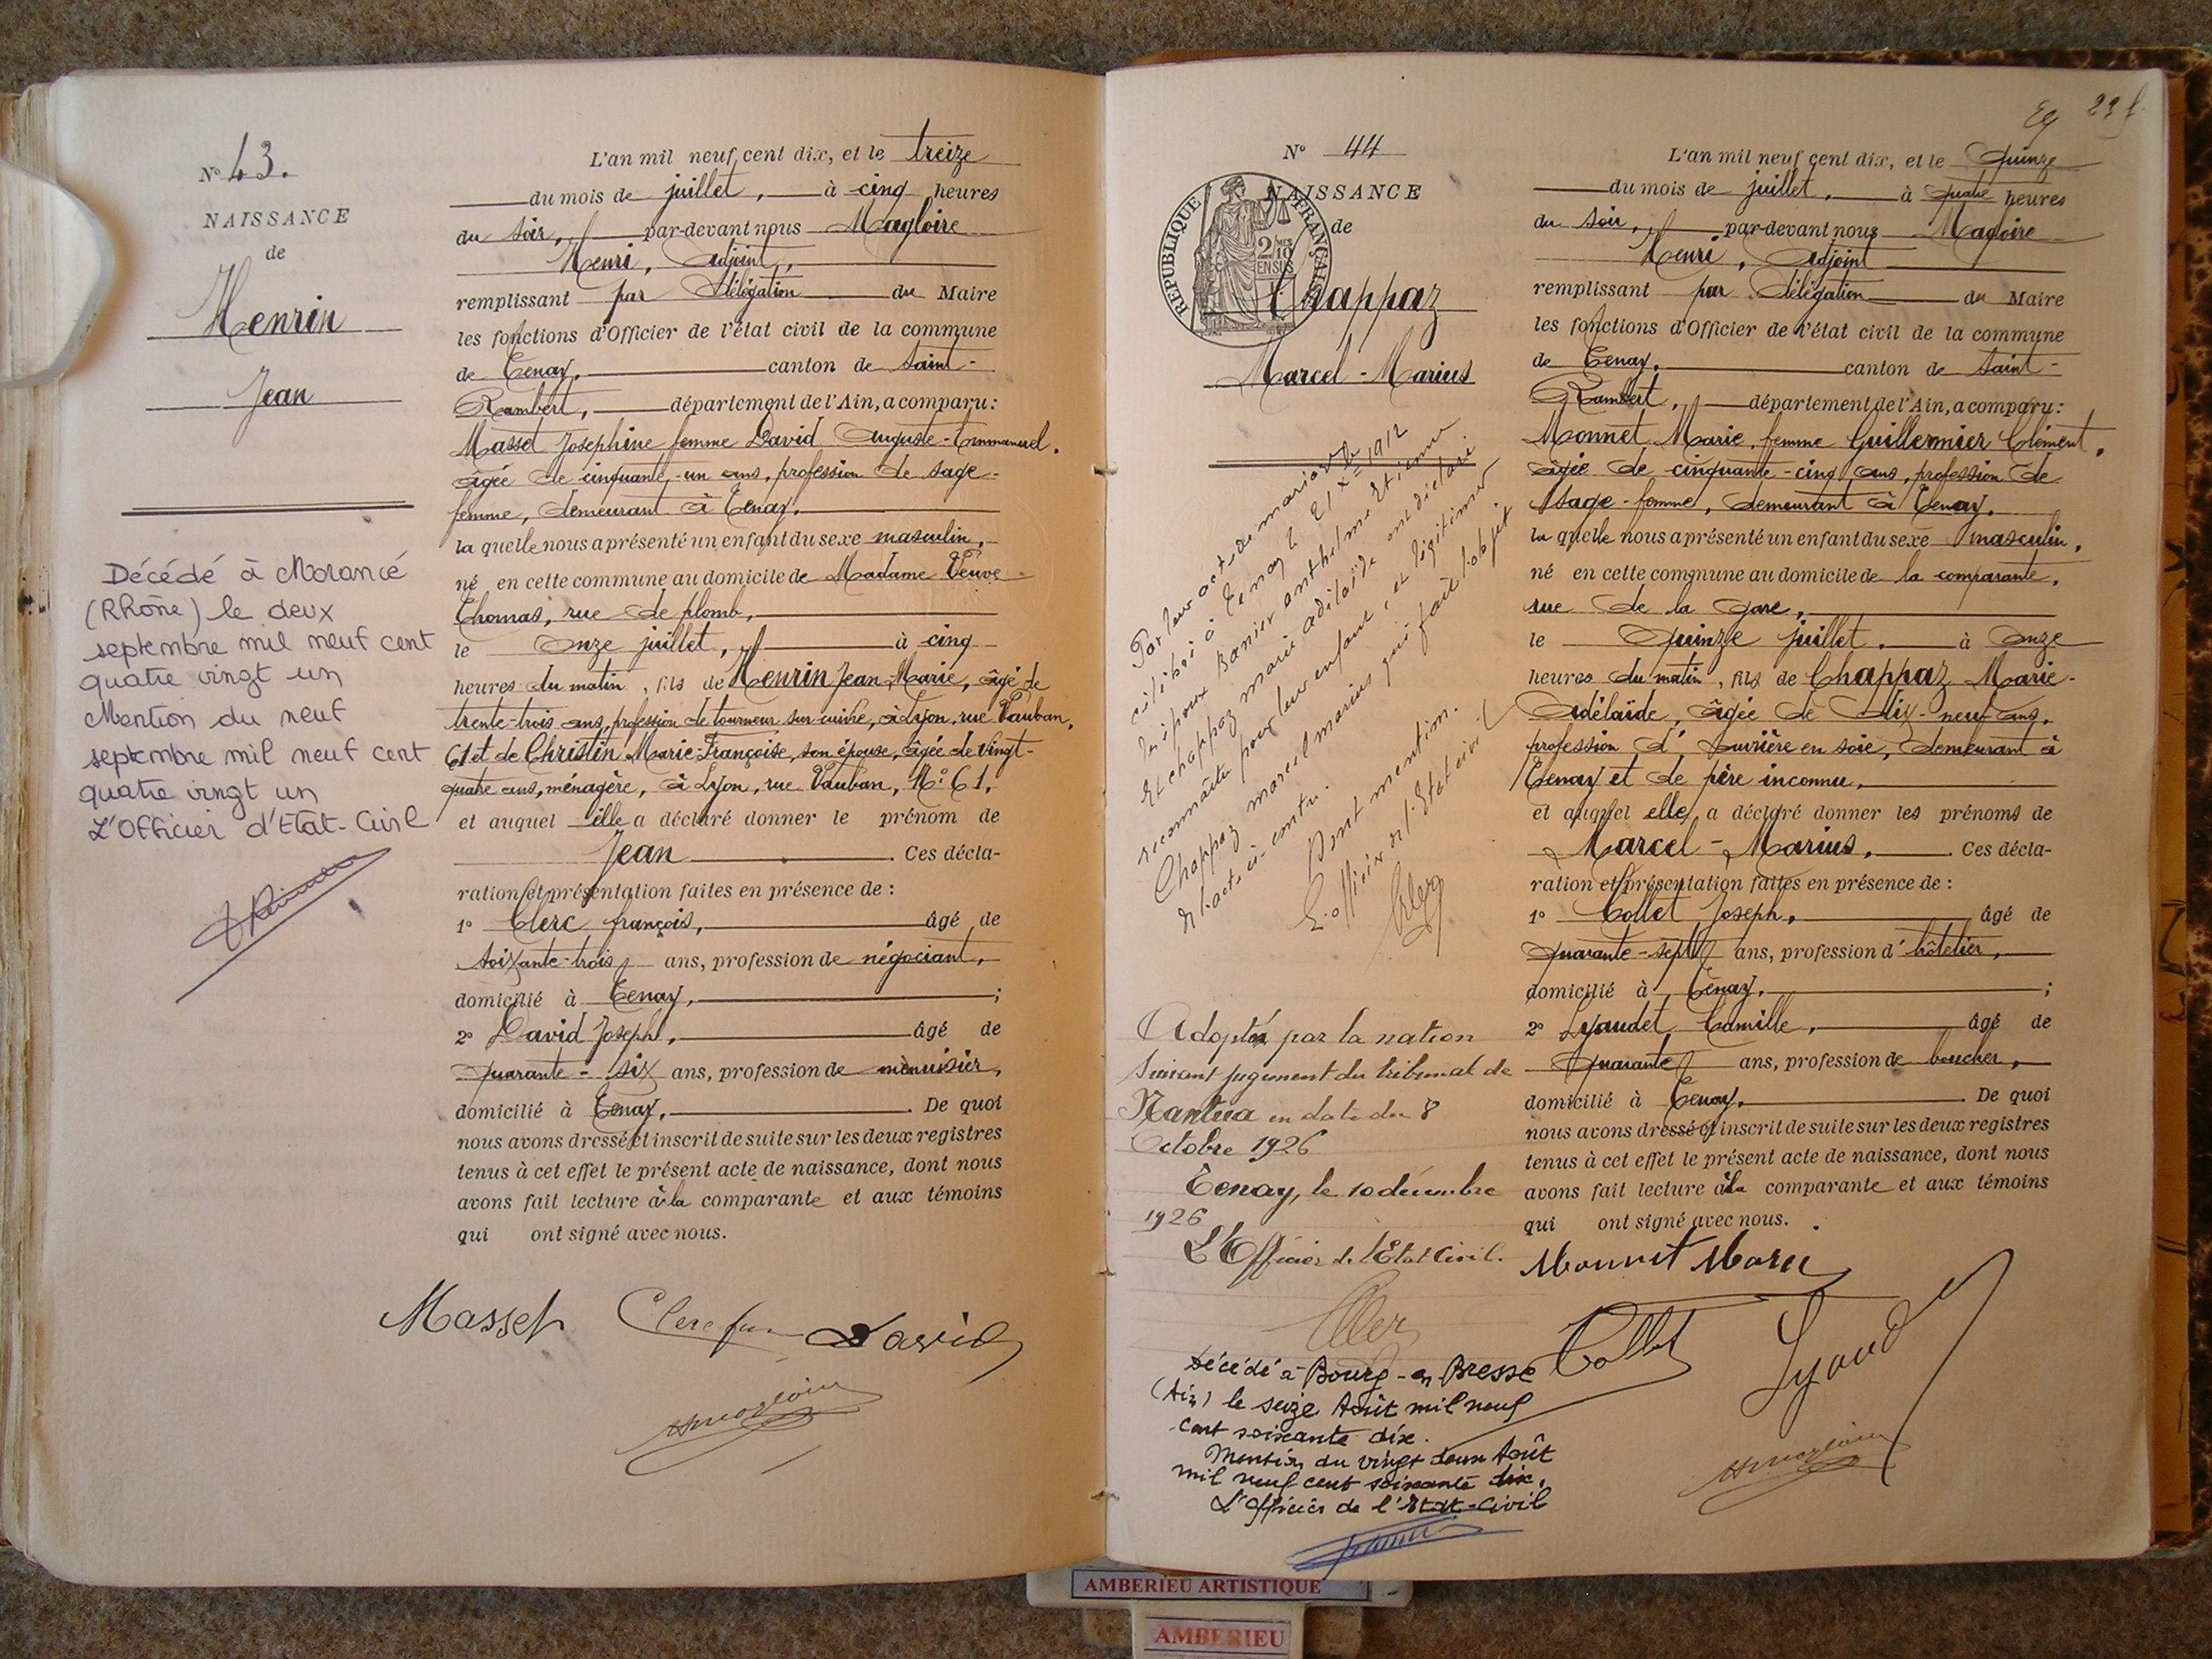 N° 43.
NAISSANCE
de
Henrin
Jean
Décédé à Morancé
(Rhône) le deux
septembre mil neuf cent
quatre vingt un
Mention du neuf
septembre mil neuf cent
quatre vingt un
L'Officier d'Etat-Civil
L'an mil neuf cent dix, et le treize
du mois de juillet, à cinq heures
du soir, par-devant nous Magloire
Henri, Adjoint,
remplissant par Délégation du Maire
les fonctions d'Officier de l'état civil de la commune
de Tenay, canton de Saint-
Rambert, département de l'Ain, a comparu:
Masset Josephine femme David Auguste-Emmanuel.
âgée de cinquante-un ans, profession de sage-
femme, demeurant à Tenay,
la quelle nous a présenté un enfant du sexe masculin,
né en cette commune au domicile de Madame Veuve
Thomas, rue de plomb,
le onze juillet, à cinq
heures du matin, fils de Henrin Jean-Marie, âgé de
trente-trois ans, profession de tourneur sur cuivre, à Lyon, rue Vauban,
61 et de Christin Marie-Françoise, son épouse, âgée de vingt-
quatre ans, ménagère, à Lyon, rue Vauban, N° 61,
et auquel elle a déclaré donner le prénom de
Jean. Ces décla-
ration et présentation faites en présence de :
1° Clerc françois, âgé de
soixante-trois ans, profession de négociant,
domicilié à Tenay, ;
2° David Joseph, âgé de
quarante-six ans, profession de menuisier,
domicilié à Tenay, . De quoi
nous avons dressé et inscrit de suite sur les deux registres
tenus à cet effet le présent acte de naissance, dont nous
avons fait lecture à la comparante et aux témoins
qui ont signé avec nous.
Masset Clerc David
29
N° 44
NAISSANCE
de
REPUBLIQUE FRANÇAISE
2/10 EN SUS
Chappaz
Marcel-Marius
Par leur acte de mariage
célébré à Tenay le 21 Xbre 1912
les époux Banier anthelme Etienne
et chappaz marie adélaïde ont déclaré
reconnaître pour leur enfant, et légitimer
Chappaz marcel marius qui fait l'objet
de l'acte ci-contre.
Dont mention.
L'officier de l'Etat civil
Adopté par la nation
suivant jugement du tribunal de
Nantua en date du 8
Octobre 1926
Tenay, le 10 décembre
1926
L'Officier de l'Etat Civil.
Décédé à Bourg-en Bresse
(Ain) le seize Août mil neuf
cent soixante dix.
Mention du vingt deux Août
mil neuf cent soixante dix,
L'officier de l'Etat-Civil
L'an mil neuf cent dix, et le Quinze
du mois de juillet, à quatre heures
du soir, par-devant nous Magloire
Henri, Adjoint
remplissant par Délégation du Maire
les fonctions d'Officier de l'état civil de la commune
de Tenay, canton de Saint-
Rambert, département de l'Ain, a comparu:
Monnet Marie femme Guillermier Clément,
âgée de cinquante-cinq ans, profession de
sage-femme, demeurant à Tenay.
la quelle nous a présenté un enfant du sexe masculin,
né en cette commune au domicile de la comparante,
rue de la gare,
le Quinze juillet, à onze
heures du matin, fils de Chappaz Marie-
Adélaïde, âgée de dix-neuf ans,
profession d'ouvrière en soie, demeurant à
Tenay et de père inconnu,
et auquel elle a déclaré donner les prénoms de
Marcel-Marius, . Ces décla-
ration et présentation faites en présence de :
1° Collet Joseph, âgé de
quarante-sept ans, profession d'hôtelier,
domicilié à Tenay, ;
2° Lyaudet Camille, âgé de
Quarante ans, profession de boucher,
domicilié à Tenay, . De quoi
nous avons dressé et inscrit de suite sur les deux registres
tenus à cet effet le présent acte de naissance, dont nous
avons fait lecture à la comparante et aux témoins
qui ont signé avec nous.
Monnet Marie
Collet
AMBERIEU ARTISTIQUE
AMBERIEU